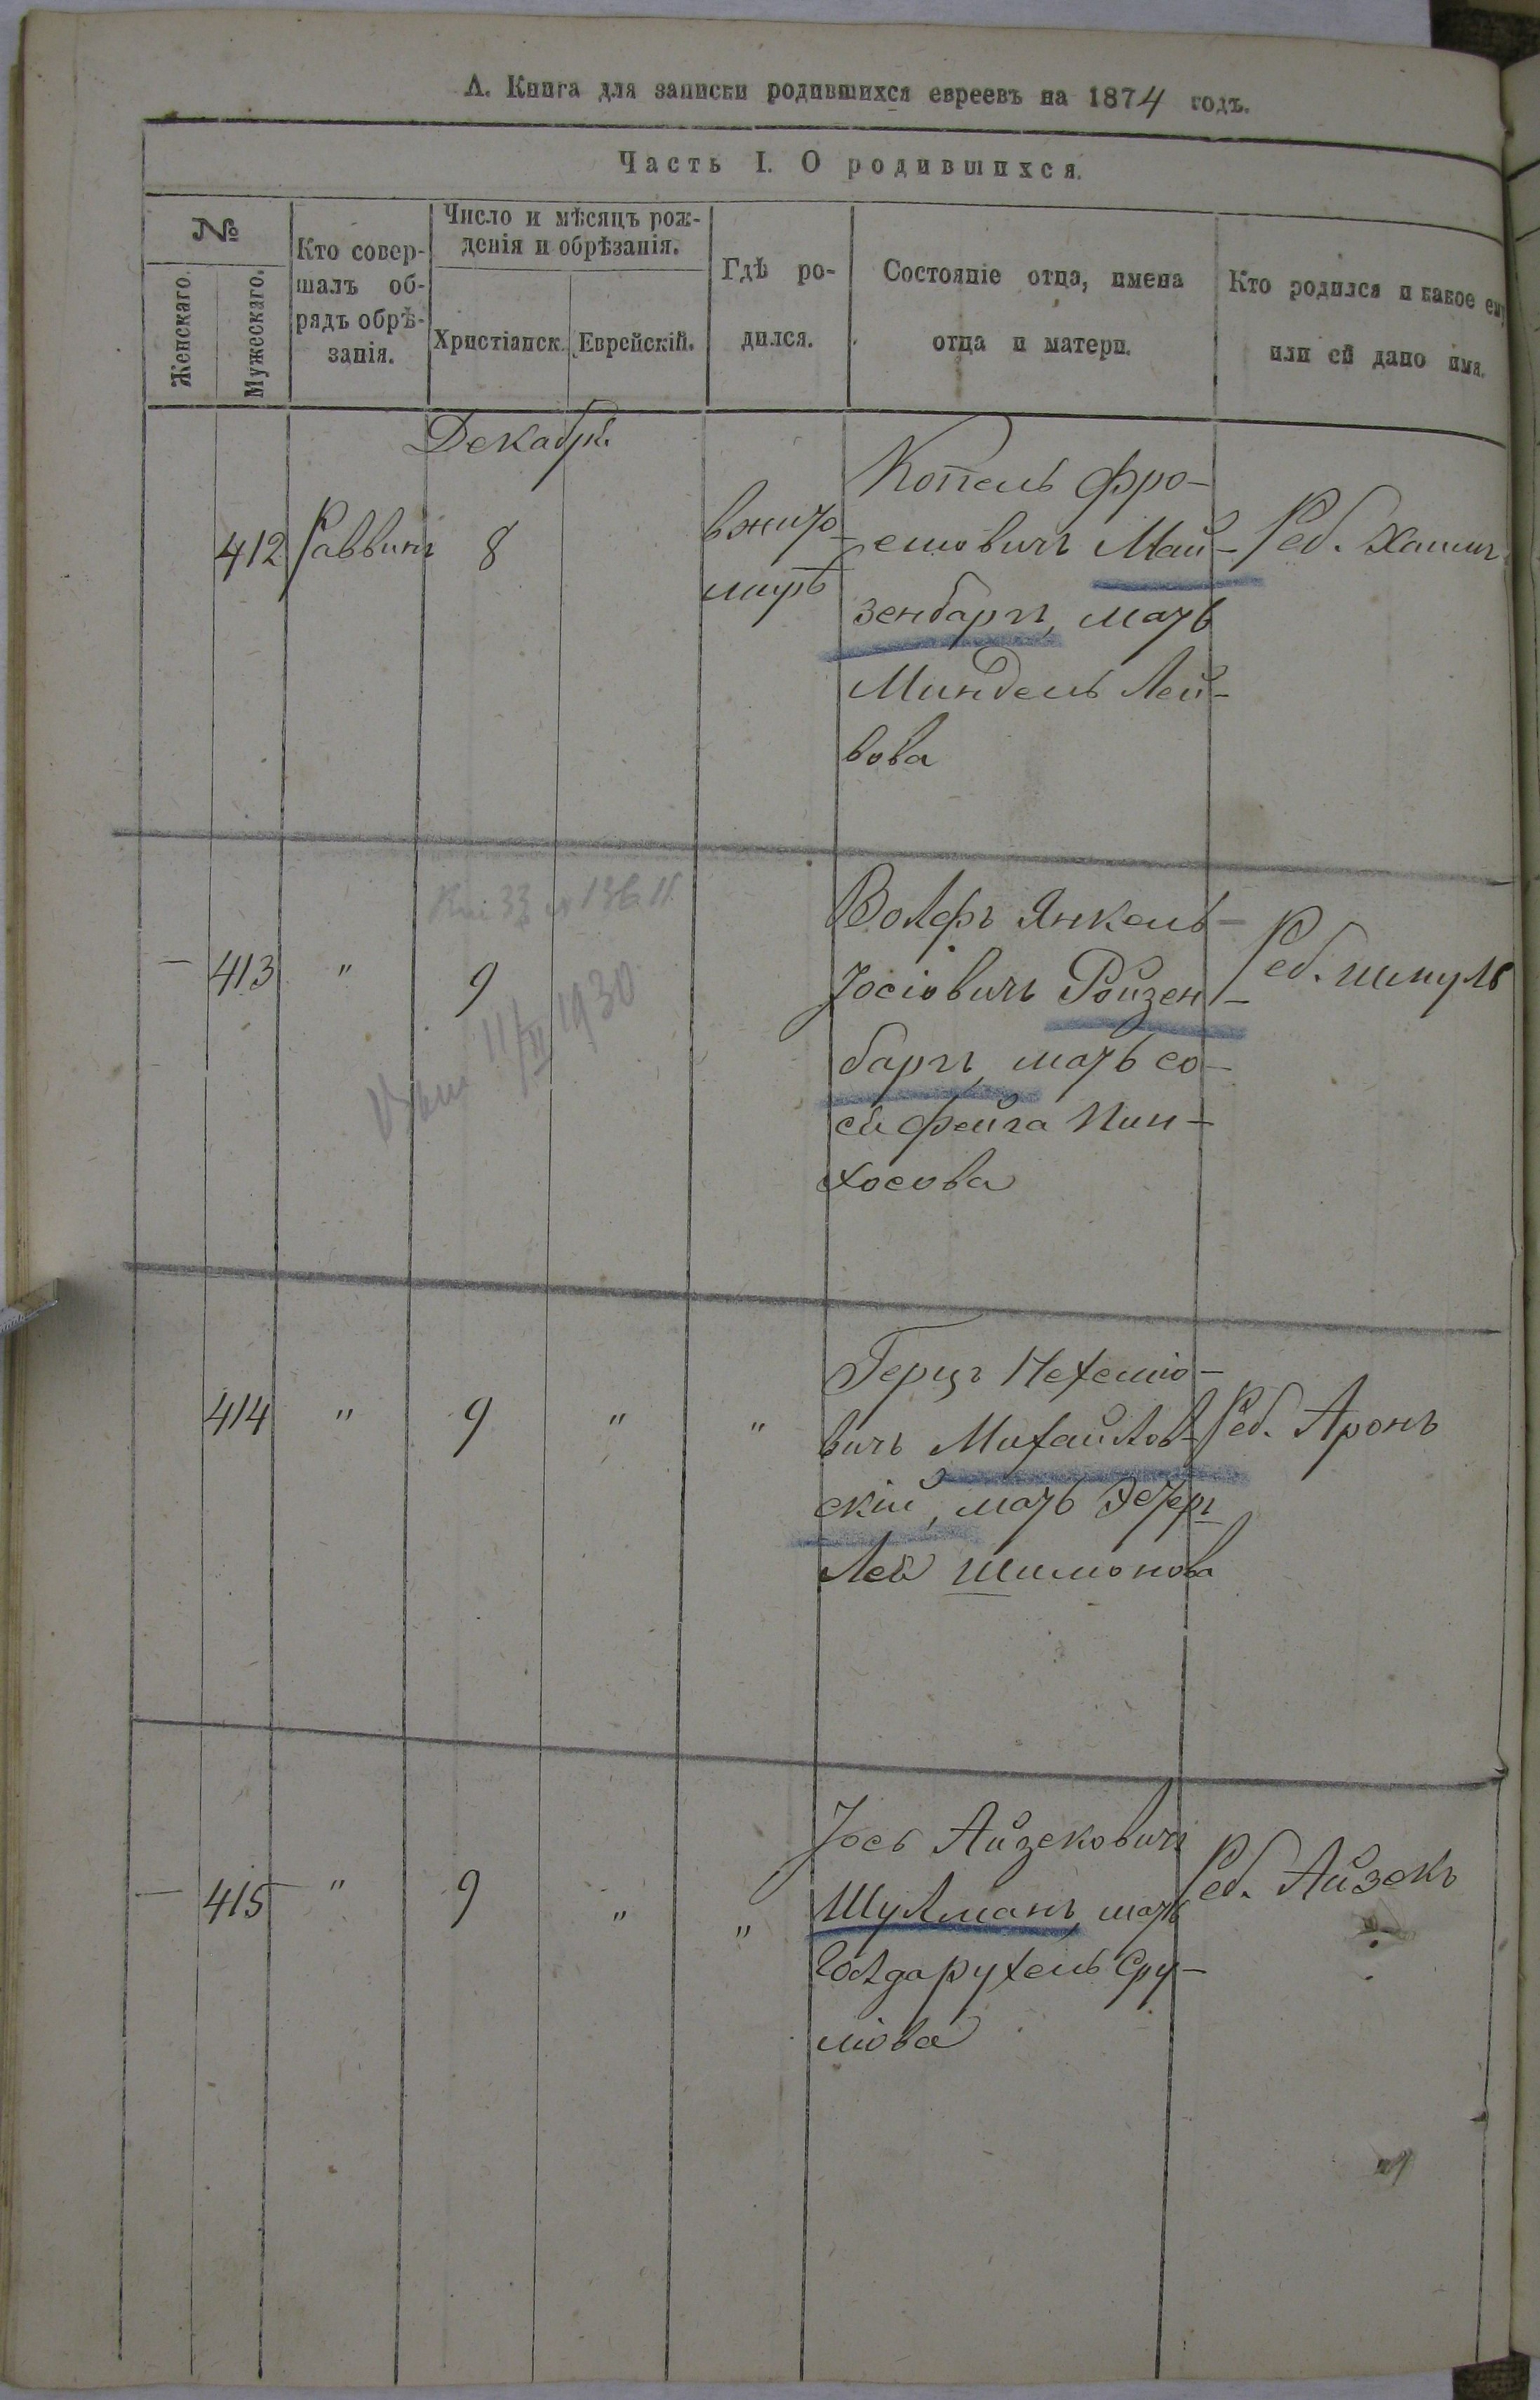 А. Книга для записки родившихся евреевъ на 1874 годъ.
Часть I. О родившихся.
№
Женскаго.
Мужескаго.
Кто совер-
шалъ об-
рядъ обрѣ-
занія.
Число и мѣсяцъ рож-
денія и обрѣзанія.
Христіанск.
Еврейскій.
Гдѣ ро-
дился.
Состояніе отца, имена
отца и матери.
Кто родился и какое ему
или ей дано имя.
Декабрь
412
Раввинъ
8
в жито-
мирѣ
Копель Фро-
емовичъ Май-
зенбаргъ, мать
Миндель Лей-
вова
Реб. Хаимъ
— 413
"
9
11/II 1930
Волфъ Янкель-
Іосіовичъ Ройзен-
баргъ, мать со-
си фейга Пин-
хосова
Реб. шмуль
414
"
9
"
"
Герцъ Нехеміо-
вичъ Михайлов-
скій, мать Эстеръ
Лея Шимонова
Реб. Аронъ
— 415
"
9
"
"
Іось Айзековичъ
Шулманъ, мать
Голдарухель Сру-
лiова
Реб. Айзекъ